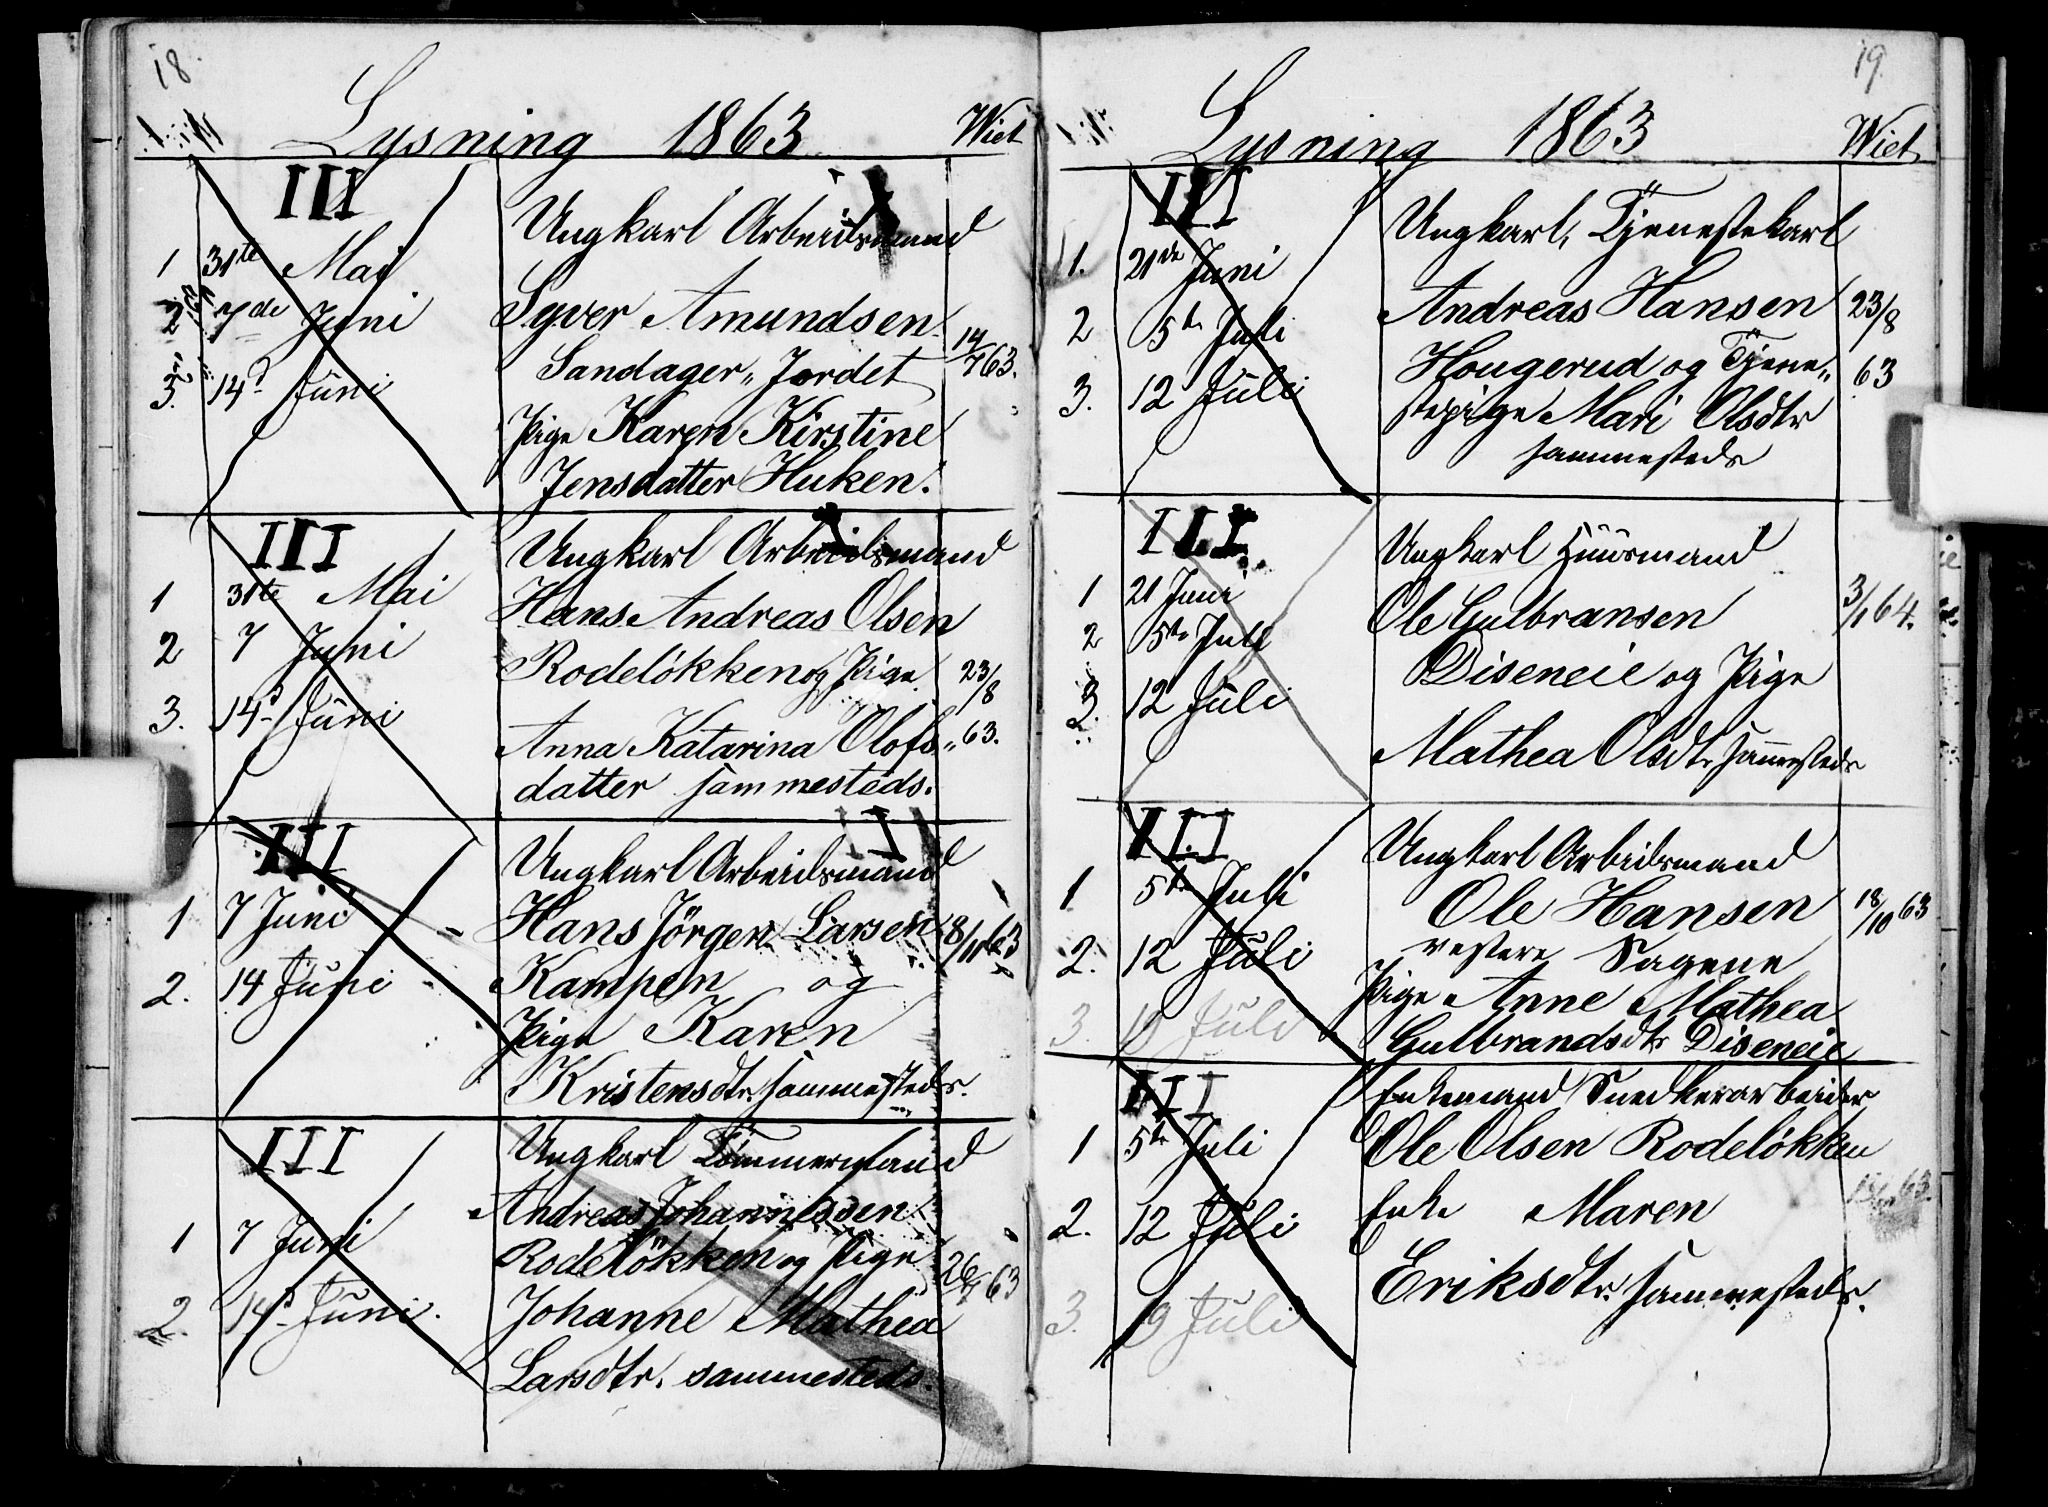 18.
Lysning 1863 Wiet
III
Ungkarl Arbeidsmand
1 31te Mai
Syver Amundsen
2 7de Juni
Sandager„ Jordet 14/7 63.
3. 14d Juni
Pige Karen Kirstine
Jensdatter Huken.
III
Ungkarl Arbeidsmand
1 31te Mai
Hans Andreas Olsen
2 7 Juni
Rodeløkken og Pige 23/8 63.
3. 14d Juni
Anna Katarina Olofs„
datter sammesteds.
III
Ungkarl Arbeidsmand
1 7 Juni
Hans Jörgen Larsen 8/11 63
2. 14 Juni
Kampen og
Pige Karen
Kristensdtr. sammesteds.
III
Ungkarl Tömmermand
Andreas Johannessen
1 7 Juni
Rodelökken og Pige 26/7 63
2. 14d Juni.
Johanne Mathea
Larsdtr. sammesteds.
19.
Lysning 1863 Wiet
III
Ungkarl, Tjenestekarl
1. 21de Juni
Andreas Hansen 23/8 63
2 5te Juli
Hougerud og Tjene„
3. 12 Juli
stepige Mari Olsdtr
sammesteds
III
Ungkarl Huusmand
1 21 Juni
Ole Gulbransen 3/1 64.
2 5te Juli
Diseneie og Pige
3. 12 Juli
Mathea Olsdtr sammesteds
III
Ungkarl Arbeidsmand
1 5te Juli
Ole Hansen 18/10 63
vestere Sagene
2. 12 Juli
Pige Anne Mathea
3. 19 Juli
Gulbrandsdtr Diseneie
III
Enkemand Snedkerarbeider
1 5te Juli
Ole Olsen Rodelökken
2. 12 Juli
Enke Maren 63.
Eriksdtr. sammesteds.
3. 19 Juli